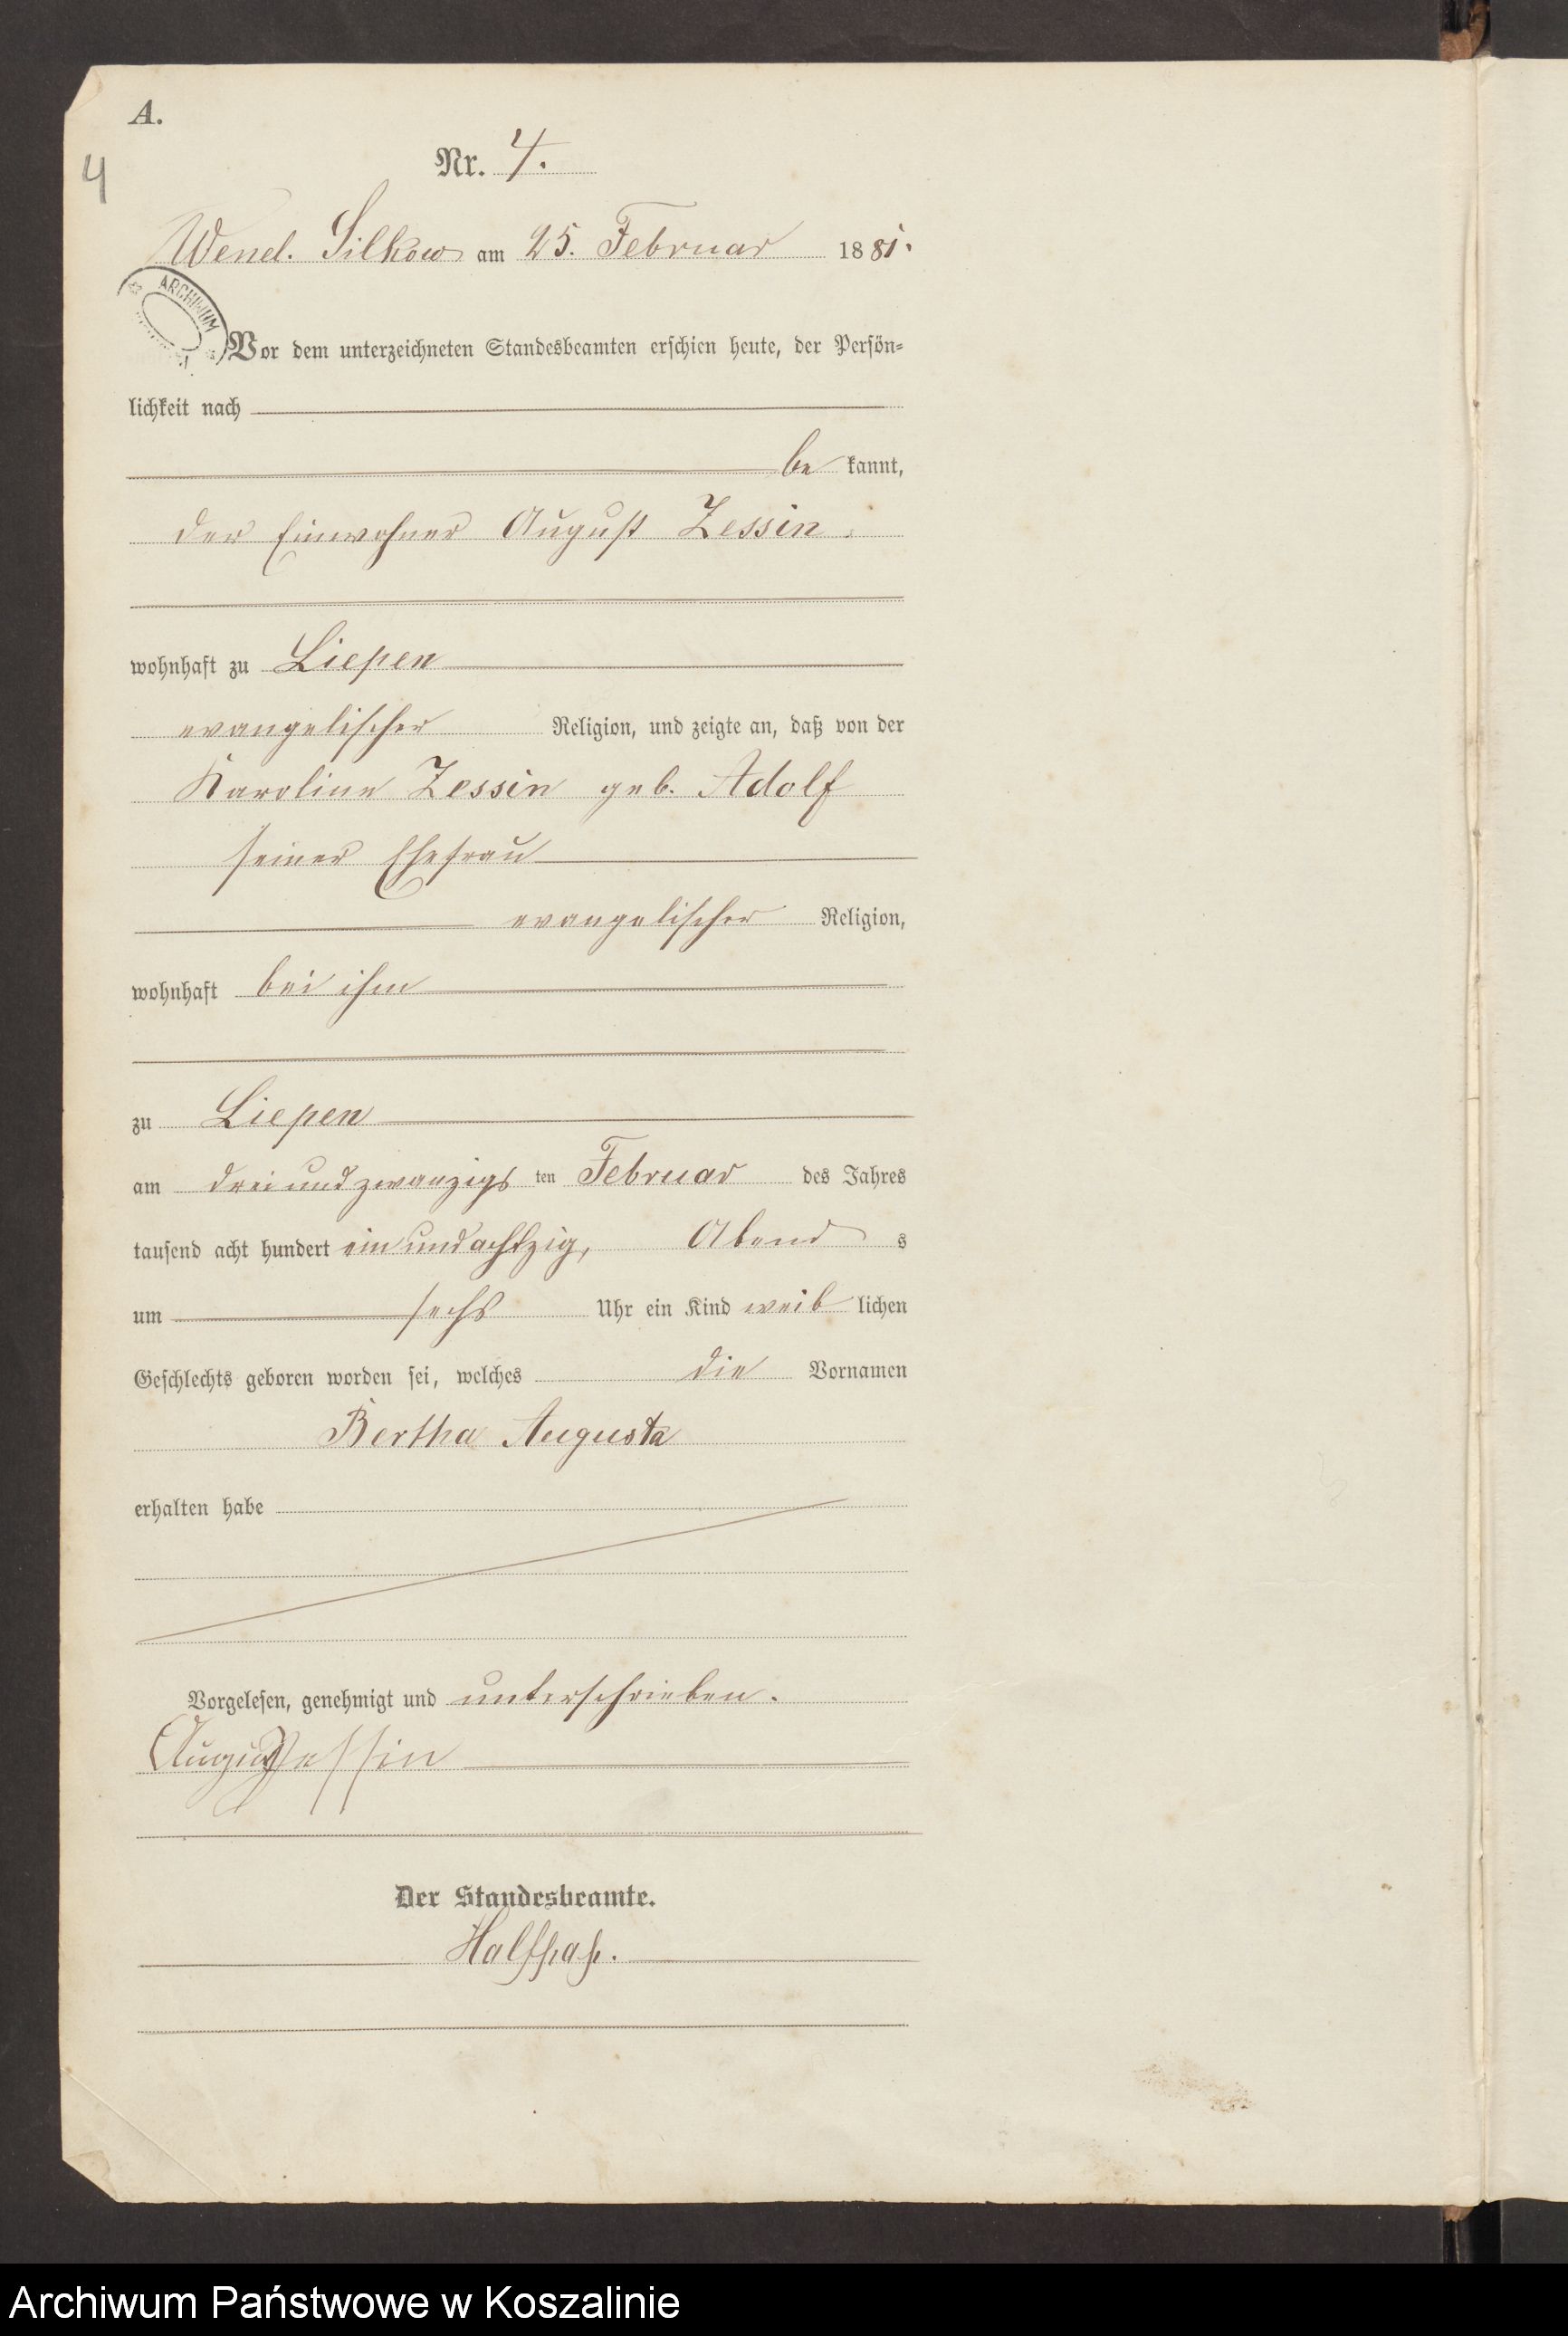 A.
4
Nr. 4.
Wend. Silkow am 25. Februar 1881.
ARCHIWUM
Vor dem unterzeichneten Standesbeamten erschien heute, der Persön-
lichkeit nach
be kannt,
der Einwohner August Zessin.
wohnhaft zu Liepen
evangelischer Religion, und zeigte an, daß von der
Karoline Zessin geb. Adolf
seiner Ehefrau
evangelischer Religion,
wohnhaft bei ihm
zu Liepen
am drei und zwanzigs ten Februar des Jahres
tausend acht hundert ein und achtzig, Abend s
um sechs Uhr ein Kind weib lichen
Geschlechts geboren worden sei, welches die Vornamen
Bertha Augusta
erhalten habe
Vorgelesen, genehmigt und unterschrieben.
August Zessin
Der Standesbeamte.
Halfpap.
Archiwum Państwowe w Koszalinie